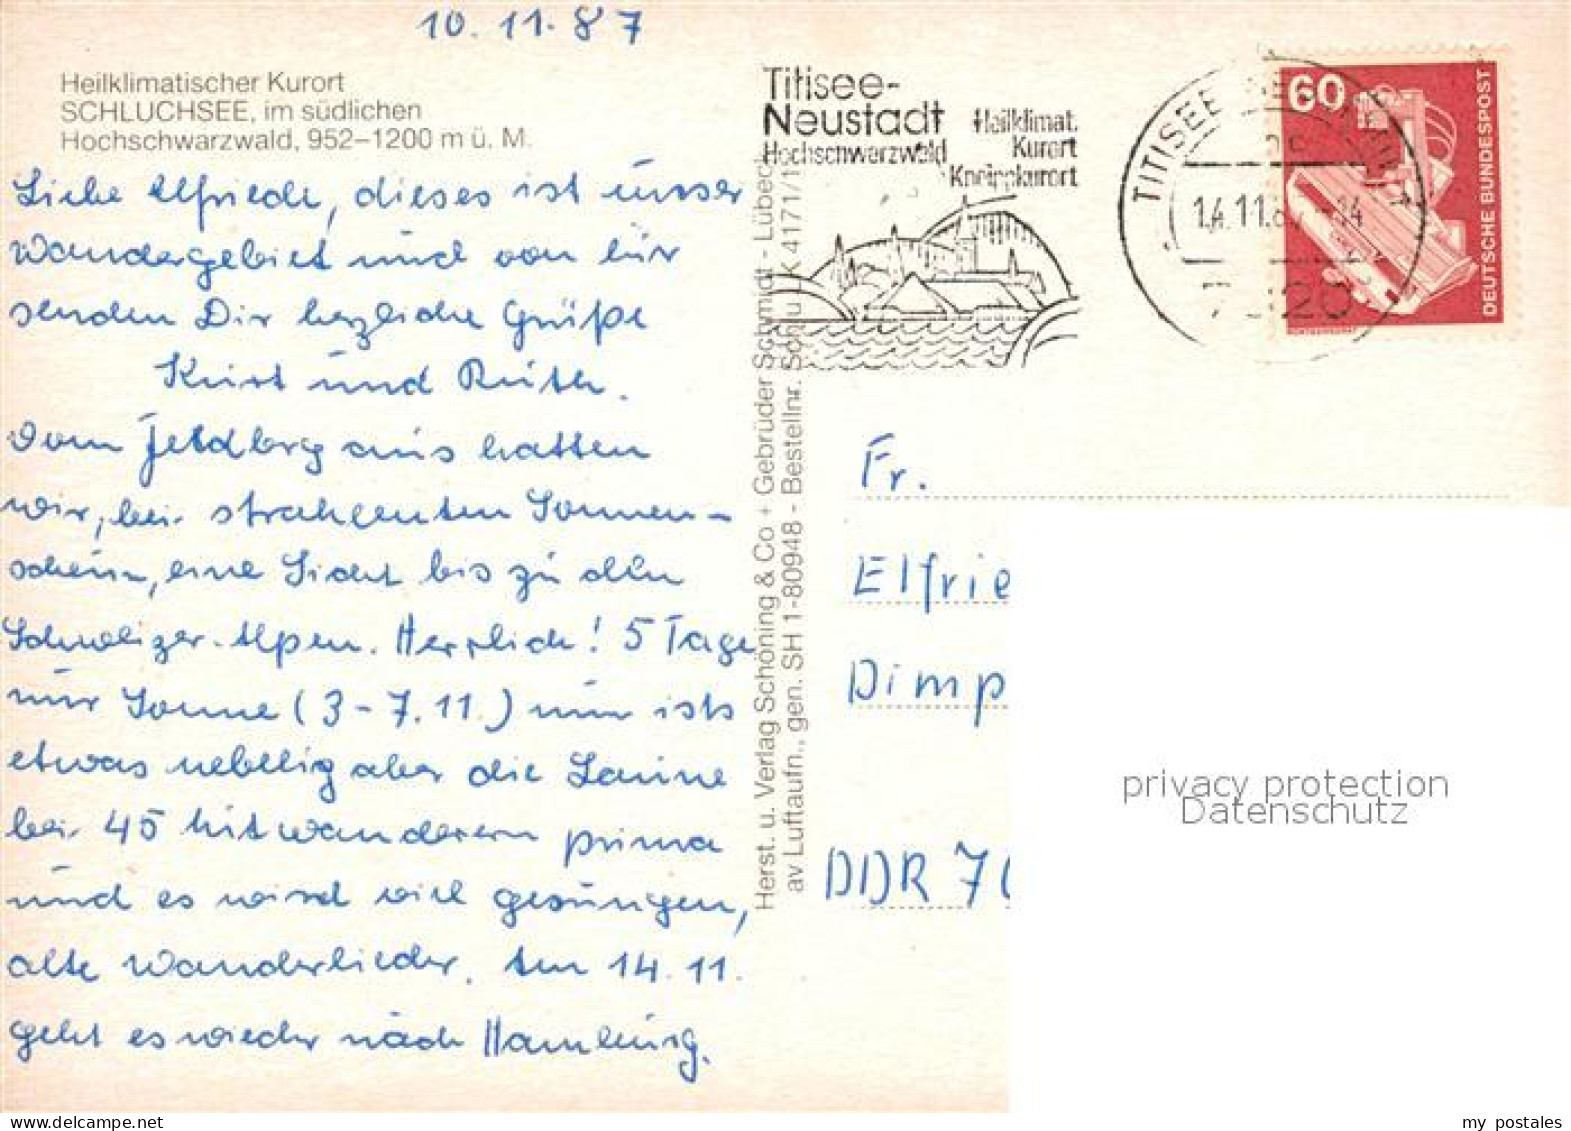 10.11.87
Heilklimatischer Kurort
SCHLUCHSEE, im südlichen
Hochschwarzwald, 952–1200 m ü. M.
Liebe Elfriede, dieses ist unser
Wandergebiet und von hier
senden Dir herzliche Grüße
Kurt und Ruth.
Vom Feldberg aus hatten
wir, bei strahlenten Sonnen-
schein, eine Sicht bis zu den
Schweizer-Alpen. Herrlich! 5 Tage
nur Sonne (3-7.11.) nun ists
etwas nebellig aber die Laune
bei 45 Mitwanderern prima
und es wird viel gesungen,
alte Wanderlieder. Am 14.11.
geht es wieder nach Hamburg.
Herst. u. Verlag Schöning & Co + Gebrüder Schmidt - Lübeck
av Luftaufn., gen. SH 1-80948 - Bestellnr. Schl u 1 K 4171/1
Titisee-
Neustadt
Hochschwarzwald
Heilklimat.
Kurort
Kneippkurort
TITISEE
14.11.8 -14
7820
60
DEUTSCHE BUNDESPOST
Fr.
Elfrie
Dimp
DDR 70
privacy protection
Datenschutz
© delcampe.net
my_postales